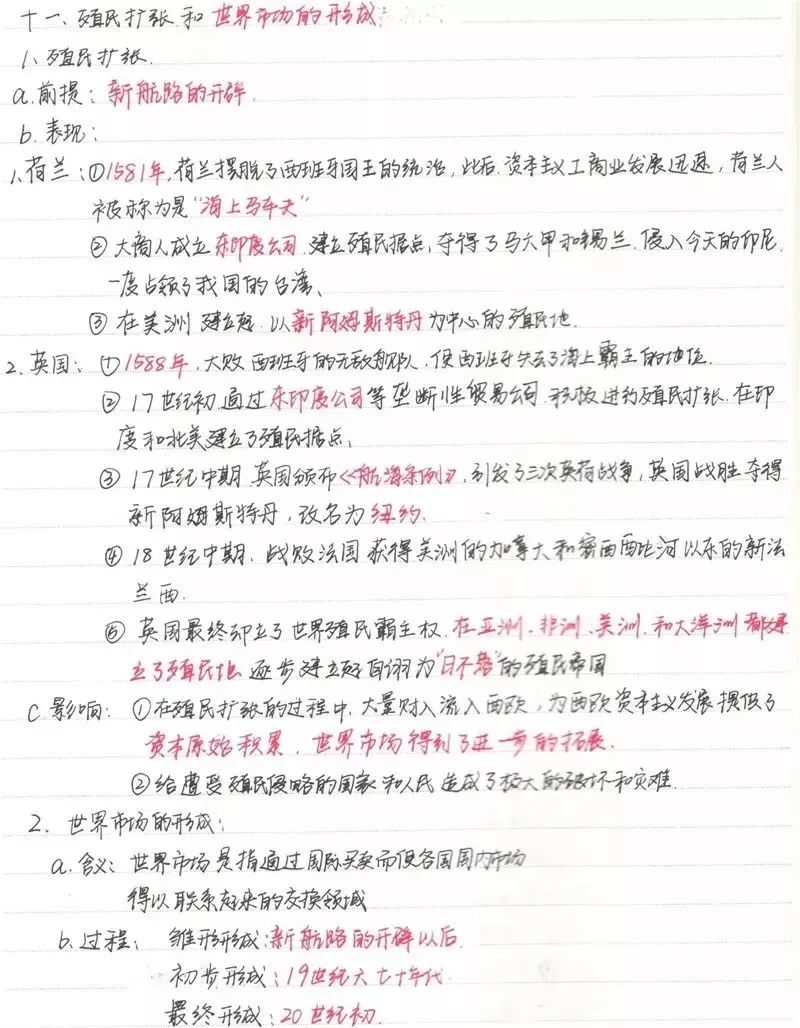 十一、殖民扩张和世界市场的形成
1、殖民扩张.
a.前提：新航路的开辟.
b.表现：
1.荷兰：①1581年,荷兰摆脱了西班牙国王的统治，此后,资本主义工商业发展迅速，荷兰人
被称为是“海上马车夫”
②大商人成立东印度公司.建立殖民据点,夺得了马六甲和锡兰.侵入今天的印尼.
一度占领了我国的台湾、
③在美洲建立起.以新阿姆斯特丹为中心的殖民地.
2.英国：①1588年,大败西班牙的无敌舰队,使西班牙失去了海上霸主的地位.
②17世纪初.通过东印度公司等垄断性贸易公司.积极进行殖民扩张.在印
度和北美建立了殖民据点、
③17世纪中期.英国颁布《航海条例》,引发了三次英荷战争,英国战胜夺得
新阿姆斯特丹，改名为纽约.
④18世纪中期.战败法国获得美洲的加拿大和密西西比河以东的新法
兰西.
⑤英国最终确立了世界殖民霸主权.在亚洲、非洲、美洲、和大洋洲都建
立了殖民地.逐步建立起自诩为“日不落”的殖民帝国
C.影响：①在殖民扩张的过程中,大量财入流入西欧，为西欧资本主义发展提供了
资本原始积累，世界市场得到了进一步的拓展.
②给遭受殖民侵略的国家和人民造成了极大的破坏和灾难.
2、世界市场的形成：
a.含义：世界市场是指通过国际买卖而使各国国内市场
得以联系起来的交换领域
b.过程：雏形形成：新航路的开辟以后.
初步形成：19世纪六七十年代
最终形成：20世纪初.